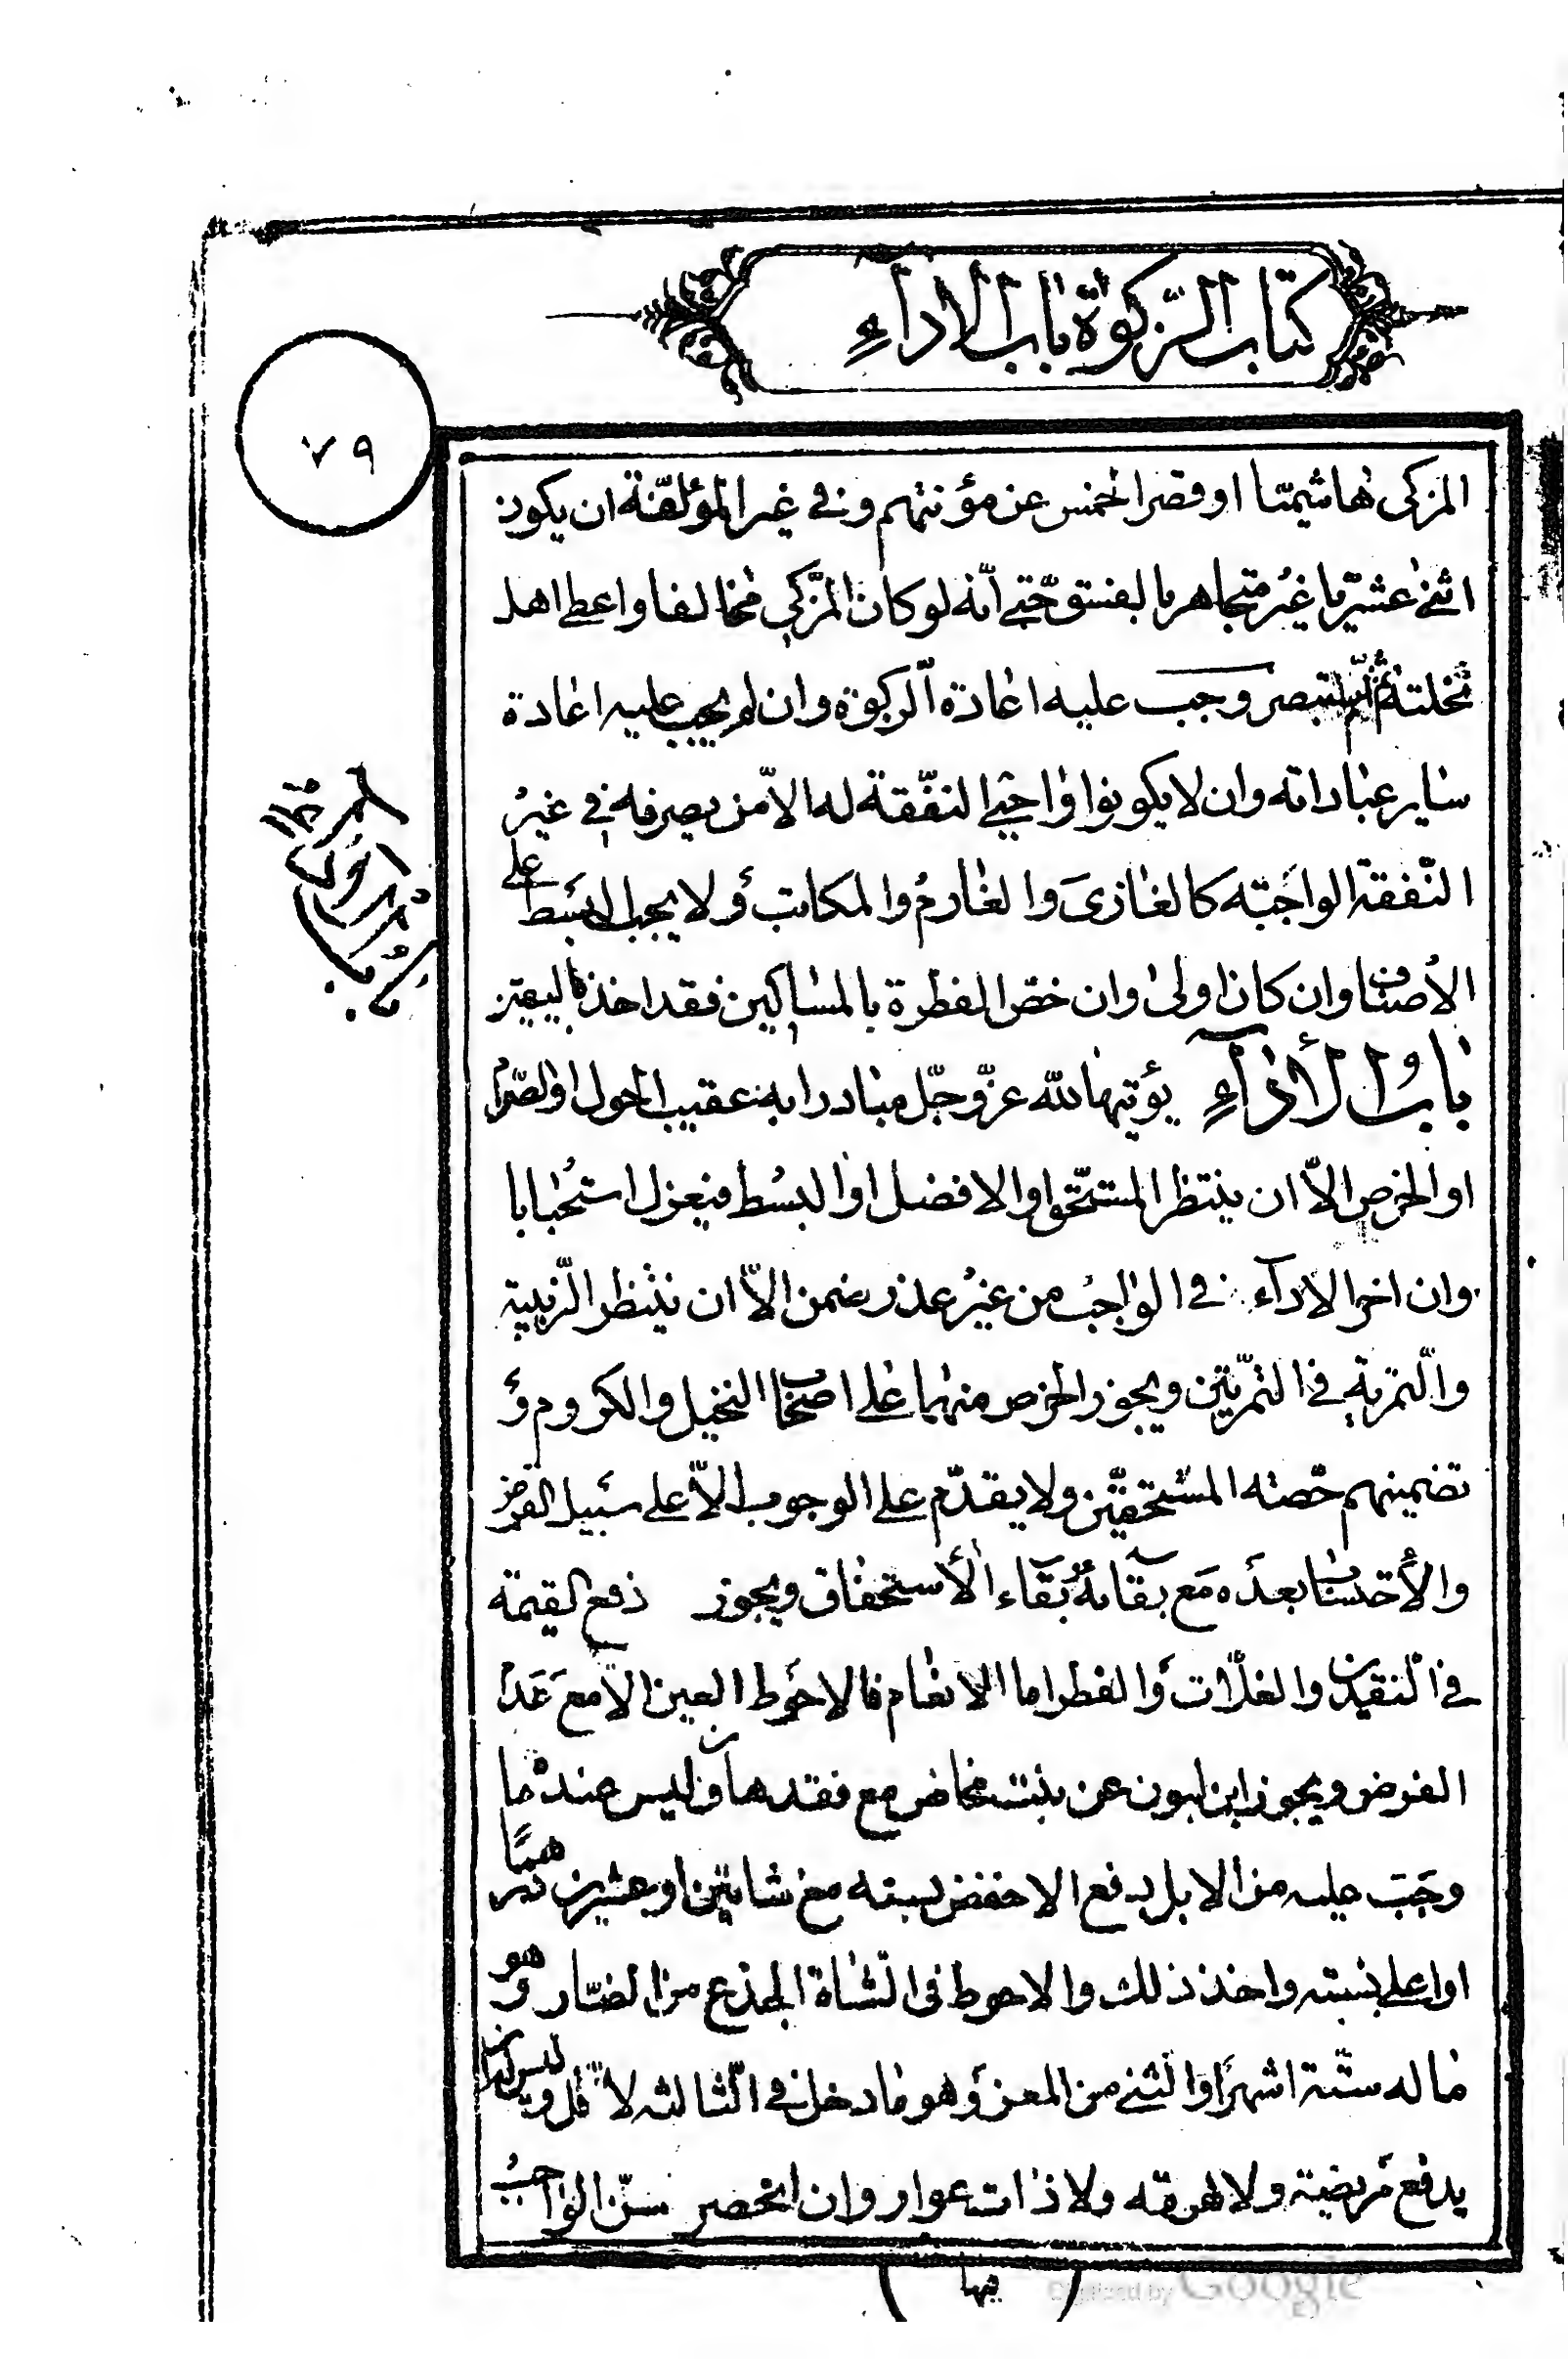 كتاب الزكوة باب الاداء
٧٩
المزكى هاشميّا او قصر الخمس عن مؤنتهم و في غير المؤلّفة ان يكون
اثنى عشريّا غير متجاهر بالفسق حتّى انّه لو كان المزّكي مخالفا واعطى اهل
نحلته ثمّ استبصر وجب عليه اعادة الزكوة وان لم يجب عليه اعادة
ساير عباداته وان لا يكونوا واجبي النفّقة له الّا من يصرفه في غير
النّفقة الواجبة كالغازى والغارم والمكاتب و لا يجب البسط على
الأصناف وان كان اولى وان خصّ الفطرة بالمساكين فقد اخذ باليقين
باب الأداء يؤتيها لله عزّ وجّل مبادرا به عقيب الحول او الصرام
او الخرص الّا ان ينتظر المستحّق او الافضل او البسط فيعزل استحبابا
وان اخر الاداء في الواجب من غير عذر ضمن الّا ان ينتظر الزبيبية
والتمرية في الثمرّتين ويجوز الخرص منهما على اصحاب النخيل والكروم و
تضمينهم حصّته المستحقّين ولا يقدّم على الوجوب الّا على سبيل القرض
والأحتساب بعده مع بقائه بقاء الأستحقاق ويجوز دفع القيمة
في النقدين والغلّات و الفطر اما الانعام فالاحوط العين الّا مع عدم
الفرض ويجوز ابن لبون عن بنت مخاض مع فقدها ومن ليس عنده ما
وجب عليه من الابل يدفع الاخفض بسنه مع شاتين او عشرين درهما
او اعلى بسنته واخذ ذلك والاحوط في الشاة الجذع من الضان وهو
ما له ستّة اشهر او الثنى من المعز و هو ما دخل في الثّالثه لا اقل وليس له ان
يدفع مريضة ولا هرمة ولا ذات عوار وان انحصر سنّ الواجب
فيها
Digitized by Google